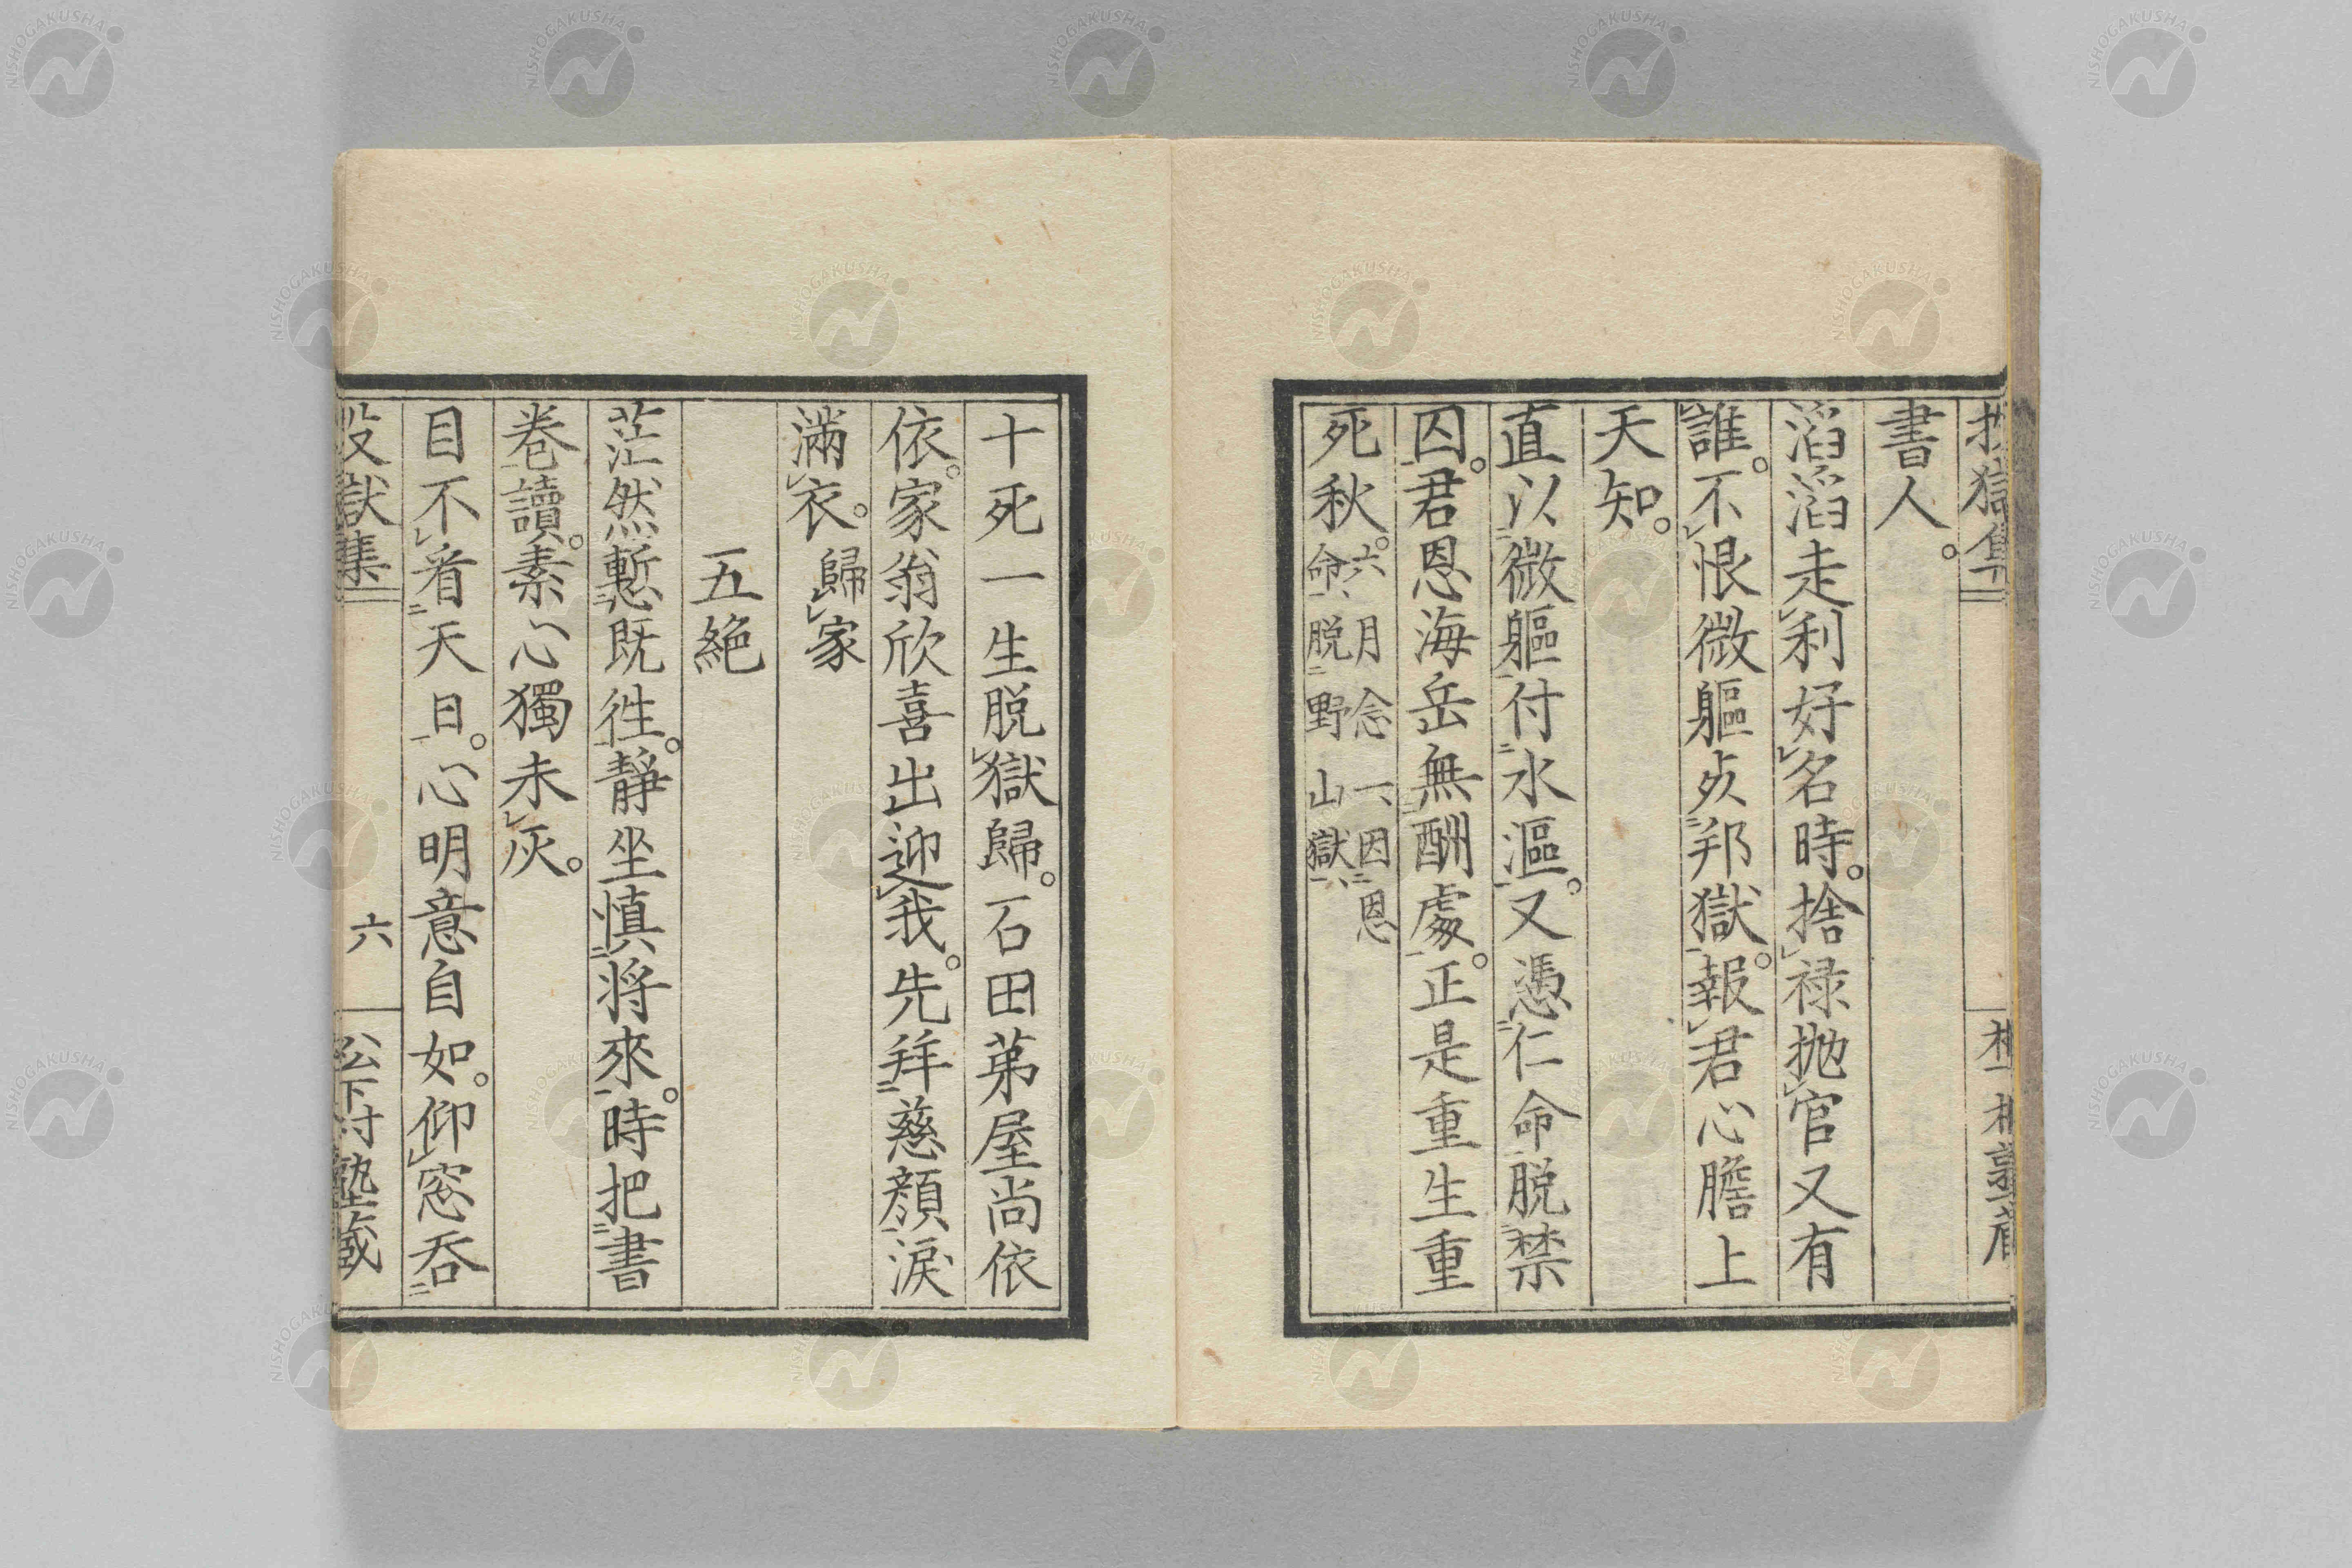 書人。
滔滔走利好名時。捨祿抛官又有
誰。不恨微軀死邦獄。報君心膽上
天知。
直以微軀付水漚。又憑仁命脱禁
囚。君恩海岳無酬處。正是重生重
死秋。六月念一因恩
命脱野山獄
十死一生脱獄歸。石田茅屋尚依
依。家翁欣喜出迎我。先拜慈顔淚
滿衣。歸家
五絶
茫然慙既徃。靜坐慎将來。時把書
巻讀。素心獨未灰。
目不看天日。心明意自如。仰窓呑
投獄集
六
松下村塾蔵
NISHOGAKUSHA